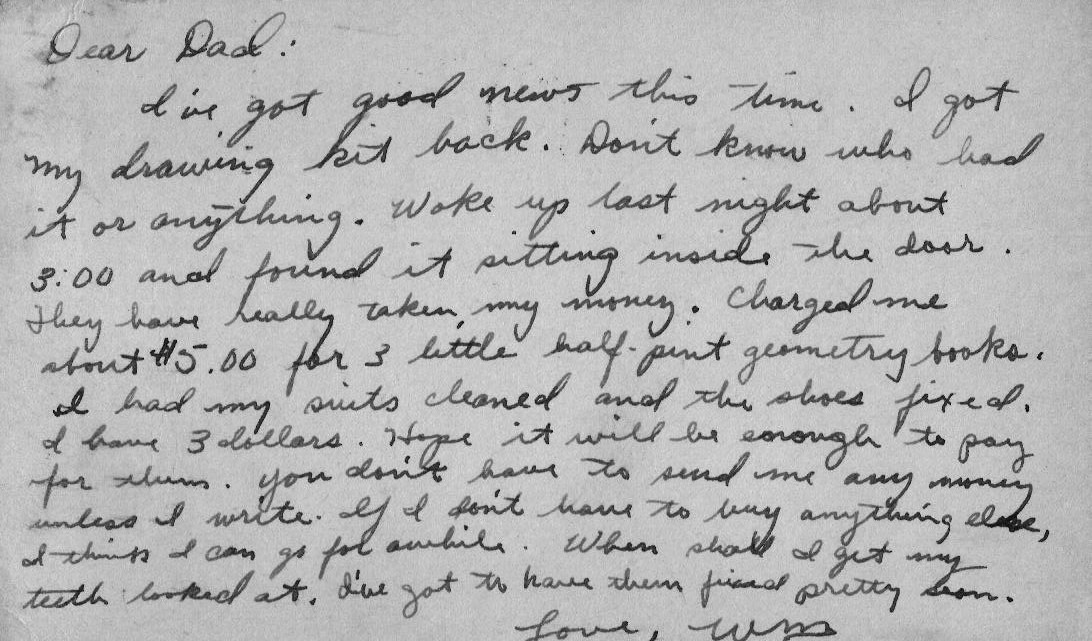 Dear Dad:
I've got good news this time. I got
my drawing kit back. Don't know who had
it or anything. Woke up last night about
3:00 and found it sitting inside the door.
They have really taken my money. Charged me
about $5.00 for 3 little half-pint geometry books.
I had my suits cleaned and the shoes fixed.
I have 3 dollars. Hope it will be enough to pay
for them. You don't have to send me any money
unless I write. If I don't have to buy anything else,
I think I can go for awhile. When shall I get my
teeth looked at. I've got to have them fixed pretty soon.
Love, Wm